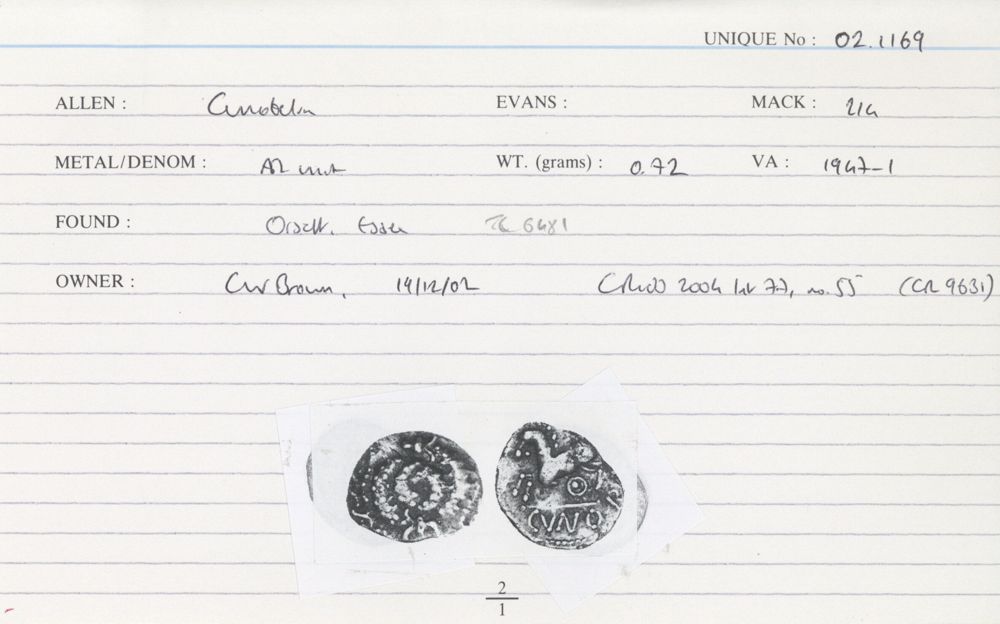 UNIQUE No : 02.1169
ALLEN : Cunobelin EVANS : MACK : 214
METAL/DENOM : AR unit WT. (grams) : 0.72 VA : 1947-1
FOUND : Orsett. Essex TQ 6481
OWNER : CW Brown, 14/12/02 2004 77, no. 55 (CR 9631)
CVNO
2
1